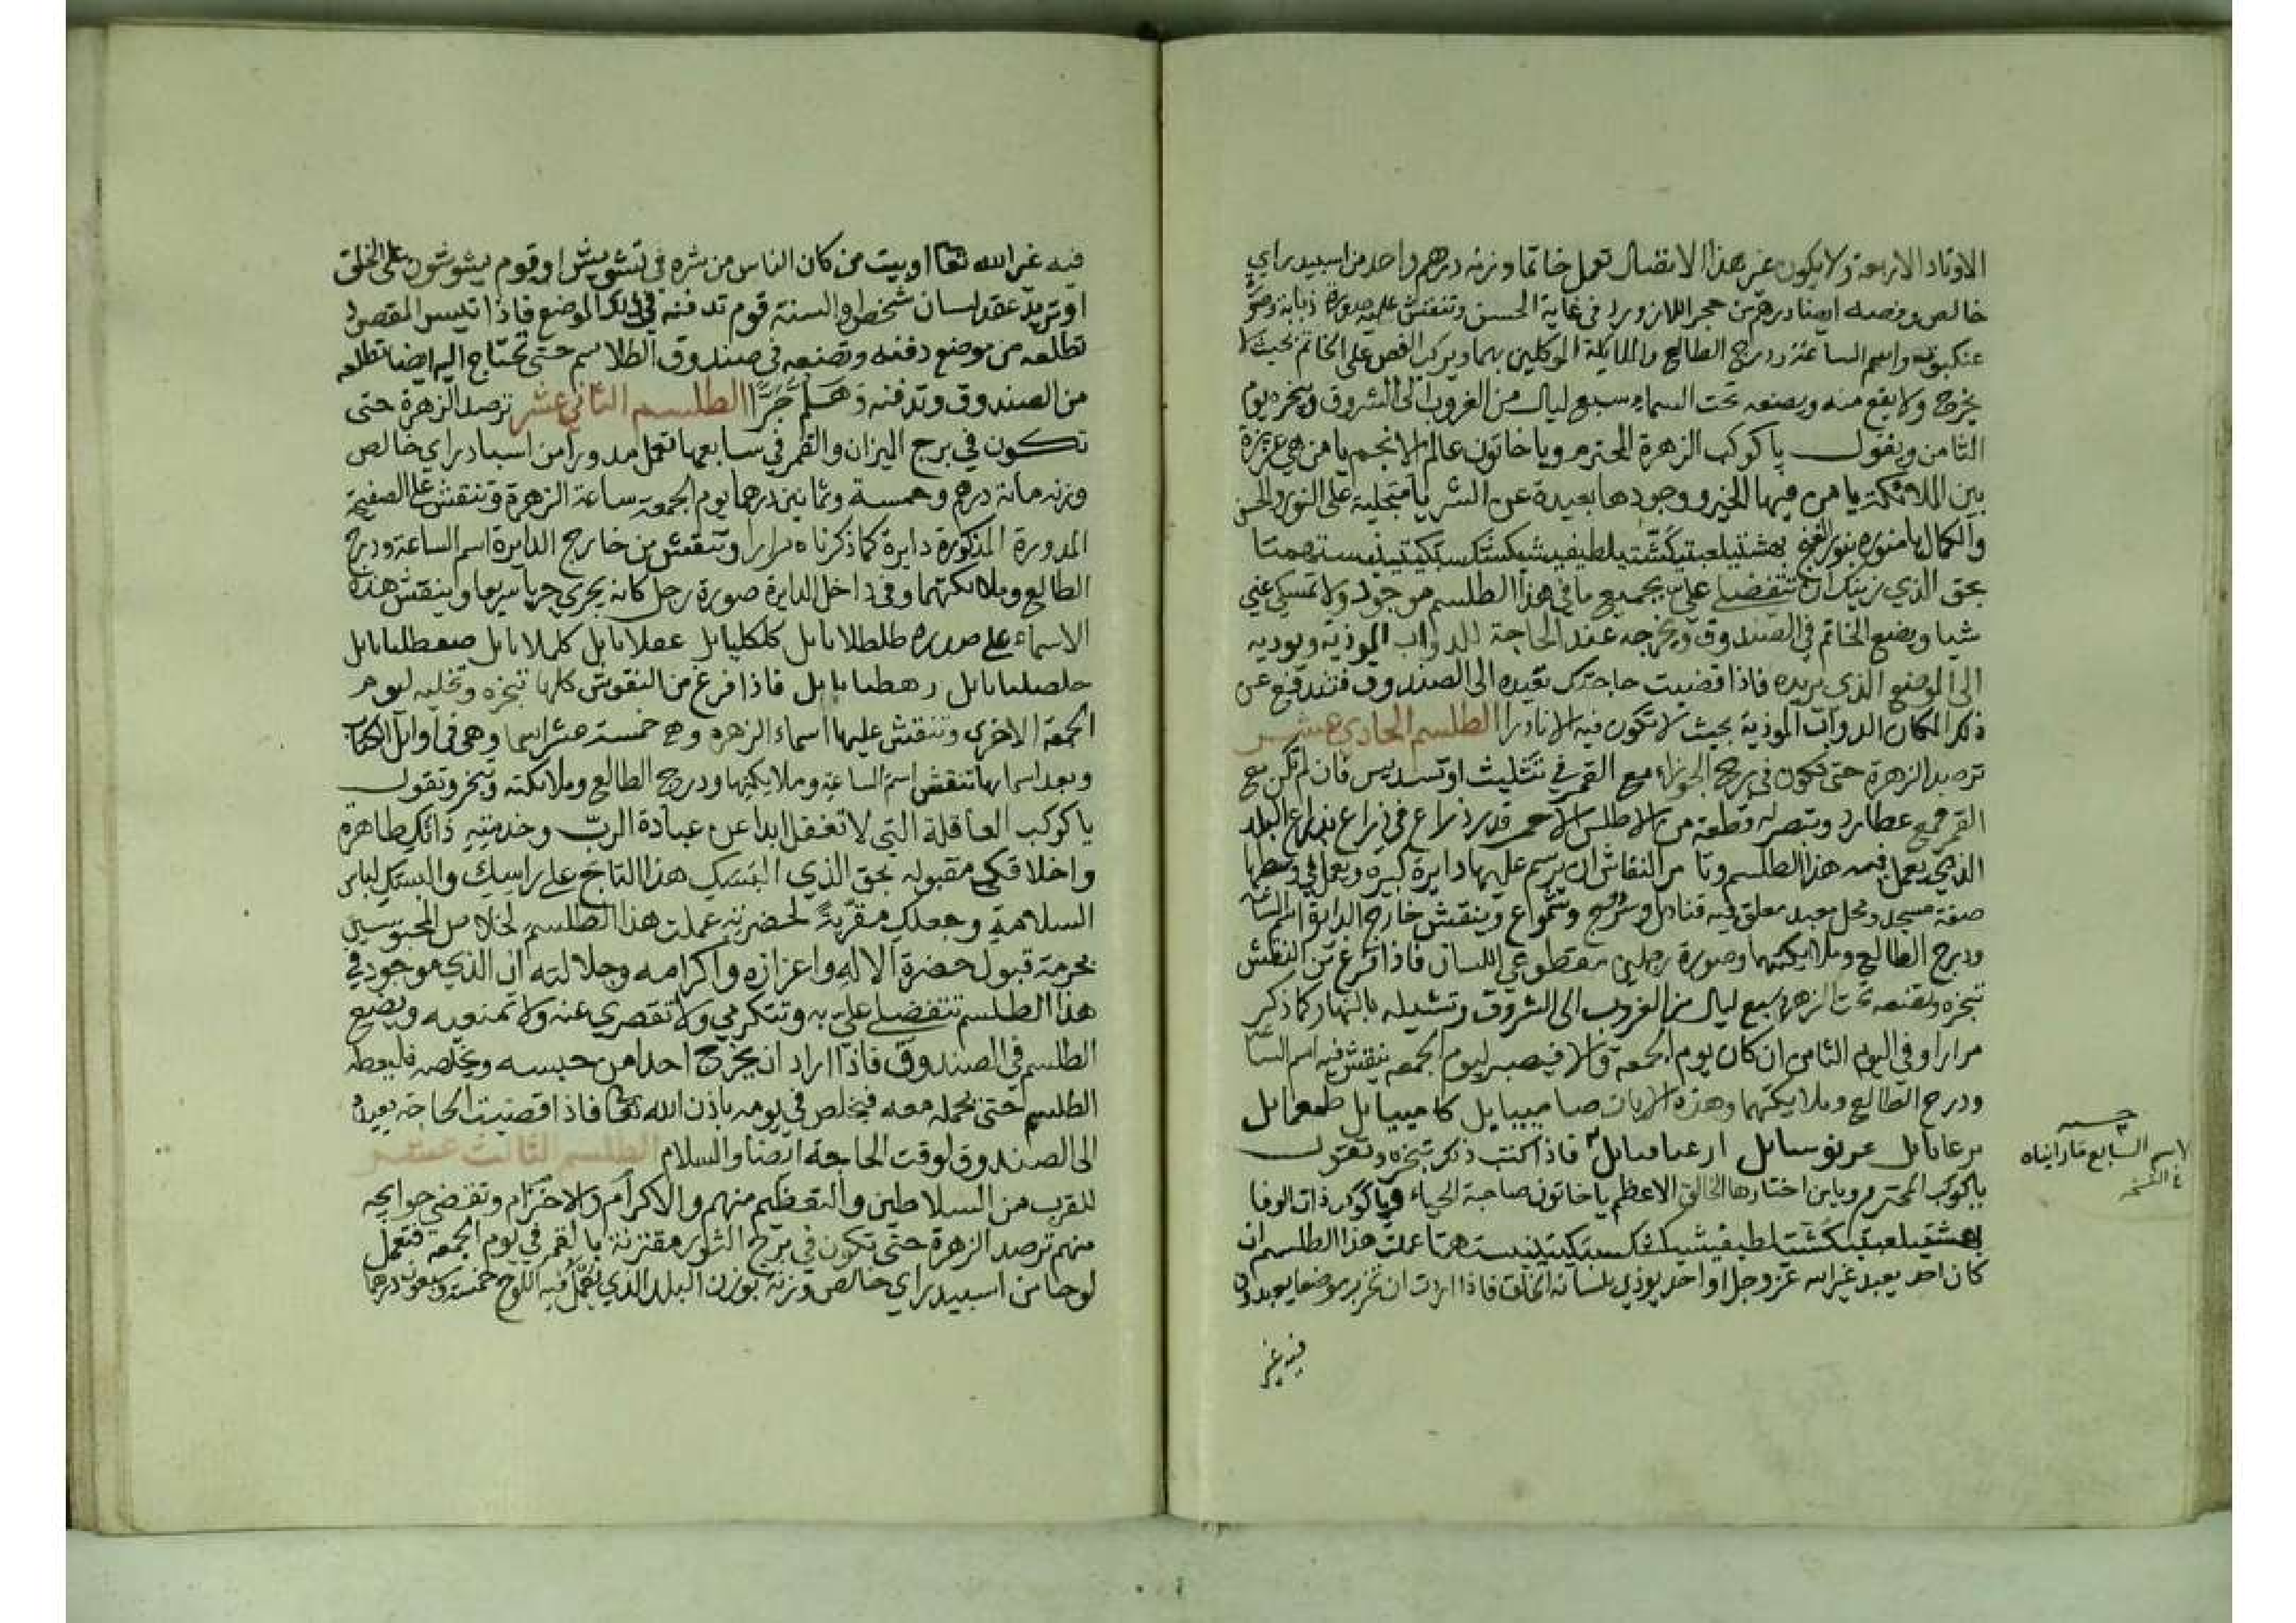 الاوتاد الاربعة ولا يكون غير هذا الاتصال تعمل خاتما وزنه درهم واحد من اسبيدراي
خالص وفصه ايضا درهم من حجر اللازورد في غاية الحسن وتنقش عليه صورة ذبابة وصورة
عنكبوت واسم الساعة ودرج الطالع والملايكة الموكلين بهما ويركب الفص على الخاتم بحيث لا
يخرج ولا يقع منه ويضعه تحت السماء سبع ليال من الغروب الى الشروق ويبخره يوم
الثامن ويقول يا كوكب الزهرة المحترم ويا خاتون عالم الانجم يا من هي عزيزة
بين الملائكة يا من فيها الخير ووجودها بعيدة عن الشر يا متجلية على النور والحسن
والكمال يا منوره بنور
بحق الذي زينك ان تتفضلي علي بجميع ما في هذا الطلسم موجود ولا تمسكي عني
شيا ويضع الخاتم في الصندوق ويخرجه عند الحاجة للدواب الموذية ويوديه
الى الموضع الذي يريده فاذا قضيت حاجتك تعيده الى الصندوق فتندفع عن
ذلك المكان الدواب الموذية بحيث لا تكون فيه الا نادرا الطلسم الحادي عشر
ترصد الزهرة حتى تكون في برج الجوزاء مع القمر في تثليث او تسديس فان لم تكن مع
القمر فمع عطارد وتحضر له قطعة من الاطلس الاحمر قدر ذراع في ذراع بذراع البلد
الذي يعمل فيه هذا الطلسم وتامر النقاش ان يرسم عليها دايرة كبيرة ويعمل في وسطها
صفة مسجد ومحل معبد معلق فيه قناديل وسرج وشموع وينقش خارج الدايرة اسم الساعة
ودرج الطالع وملايكتهما وصورة رجلين مقطوعي اللسان فاذا فرغ من النقش
تبخره وتضعه تحت الزهرة سبع ليال من الغروب الى الشروق وتشيله بالنهار كما ذكر
مرارا وفي اليوم الثامن ان كان يوم الجمعة والا فيصبر ليوم الجمعة ينقش فيه اسم الساعة
ودرج الطالع وملايكتهما وهذه
فاذا كتب ذلك تبخره وتقول
يا كوكب المحترم ويا من اختارها الخالق الاعظم يا خاتون صاحبة الحياء ويا كوكب ذات الوفا
عملت هذا الطلسم ان
كان احد يعبد غير الله عز وجل او احد يوذي بلسانه الخلق فاذا اردت ان تخرب موضعا يعبدون
فيه غير
الاسم السابع ما رايناه
في النسخه
فيه غير الله تعا او بيت من كان الناس من شره في تشويش او قوم يشوشون على الخلق
او تريد عقد لسان شخص او السنة قوم تدفنه في ذلك الموضع فاذا تيسر المقصود
تطلعه من موضع دفنه وتضعه في صندوق الطلاسم حتى تحتاج اليه ايضا تطلعه
من الصندوق وتدفنه وهلم جرا الطلسم الثاني عشر ترصد الزهرة حتى
تكون في برج الميزان والقمر في سابعها تعمل مدورا من اسبادراي خالص
وزنه مائة درهم وخمسة وثمانين درهما يوم الجمعة ساعة الزهرة وتنقش على الصفيحة
المدورة المذكورة دايرة كما ذكرناه مرارا وتنقش من خارج الدايرة اسم الساعة ودرج
الطالع وملائكتهما وفي داخل الدايرة صورة رجل كانه يجري جريا سريعا وينقش هذه
الاسماء على صدره
فاذا فرغ من النقوش كلها تبخره وتخليه ليوم
الجمعة الاخرى وتنقش عليها اسماء الزهره وهي خمسة عشر اسما وهي في اوايل الكتاب
وبعد اسمايها تنقش اسم الساعة وملايكتها ودرج الطالع وملايكته وتبخر وتقول
يا كوكب العاقلة التي لا تغفل ابدا عن عبادة الرب وخدمته ذاتك طاهرة
واخلاقك مقبوله بحق الذي البسك هذا التاج على راسك والبسك لباس
السلامة وجعلك مقربة لحضرته عملت هذا الطلسم لخلاص المحبوسين
بحرمة قبول حضرة الاله واعزازه واكرامه وجلالته ان الذي موجود في
هذا الطلسم تتفضلي علي به وتتكرمي ولا تقصري عنه ولا تمنعيه ويضع
الطلسم في الصندوق فاذا اراد ان يخرج احدا من حبسه ويخلصه فليعطه
الطلسم حتى يحمله معه فيخلص في يومه باذن الله تعا فاذا قضيت الحاجة يعيده
الى الصندوق لوقت الحاجة ايضا والسلام الطلسم الثالث عشر
للقرب من السلاطين والتعظيم منهم والاكرام والاحترام وتقضى حوايجه
منهم ترصد الزهرة حتى تكون في برج الثور مقترنة بالقمر في يوم الجمعة فتعمل
لوحا من اسبيدراي خالص وزنه بوزن البلد الذي يعمل فيه اللوح خمسة وسبعون درهما